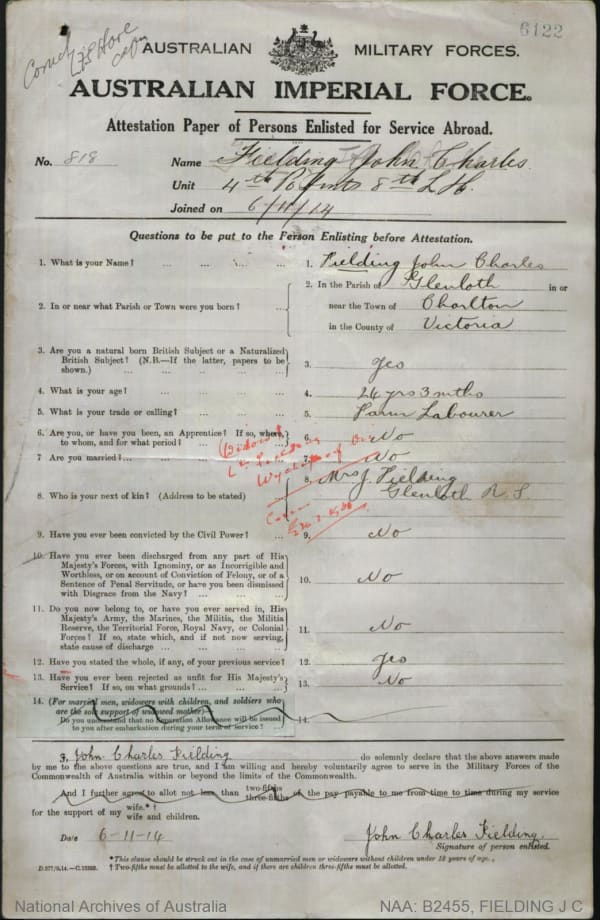 6122
AUSTRALIAN MILITARY FORCES.
AUSTRALIAN IMPERIAL FORCE.
Attestation Paper of Persons Enlisted for Service Abroad.
No. 818 Name Fielding John Charles
Unit 4th Rfmts 8th L.H.
Joined on 6/11/14
Questions to be put to the Person Enlisting before Attestation.
1. What is your Name? ... ... ... ... 1. Fielding John Charles
2. In or near what Parish or Town were you born? ... 2. In the Parish of Glenloth in or
near the Town of Charlton
in the County of Victoria
3. Are you a natural born British Subject or a Naturalized
British Subject? (N.B.—If the latter, papers to be
shown.) ... ... ... ... 3. Yes
4. What is your age? ... ... ... ... 4. 24 yrs 3 mths
5. What is your trade or calling? ... ... ... 5. Farm Labourer
6. Are you, or have you been, an Apprentice? If so, where,
to whom, and for what period? ... ... 6. No
7. Are you married? ... ... ... ... 7. No
8. Who is your next of kin? (Address to be stated) ... 8. Mrs J. Fielding
Glenloth R. S.
9. Have you ever been convicted by the Civil Power? ... 9. No
10. Have you ever been discharged from any part of His
Majesty's Forces, with Ignominy, or as Incorrigible and
Worthless, or on account of Conviction of Felony, or of a
Sentence of Penal Servitude, or have you been dismissed
with Disgrace from the Navy? ... ... 10. No
11. Do you now belong to, or have you ever served in, His
Majesty's Army, the Marines, the Militia, the Militia
Reserve, the Territorial Force, Royal Navy, or Colonial
Forces? If so, state which, and if not now serving,
state cause of discharge ... ... ... 11. No
12. Have you stated the whole, if any, of your previous service? 12. Yes
13. Have you ever been rejected as unfit for His Majesty's
Service? If so, on what grounds? ... ... 13. No
14. (For married men, widowers with children, and soldiers who
are the sole support of widowed mother)—
Do you understand that no Separation Allowance will be issued
to you after embarkation during your term of service? 14.
I, John Charles Fielding do solemnly declare that the above answers made
by me to the above questions are true, and I am willing and hereby voluntarily agree to serve in the Military Forces of the
Commonwealth of Australia within or beyond the limits of the Commonwealth.
And I further agree to allot not less than two-fifths three-fifths of the pay payable to me from time to time during my service
for the support of my wife.*† wife and children.
Date 6-11-14 John Charles Fielding.
Signature of person enlisted.
*This clause should be struck out in the case of unmarried men or widowers without children under 18 years of age.
D.577/9.14.—C.12333. † Two-fifths must be allotted to the wife, and if there are children three-fifths must be allotted.
National Archives of Australia NAA: B2455, FIELDING J C